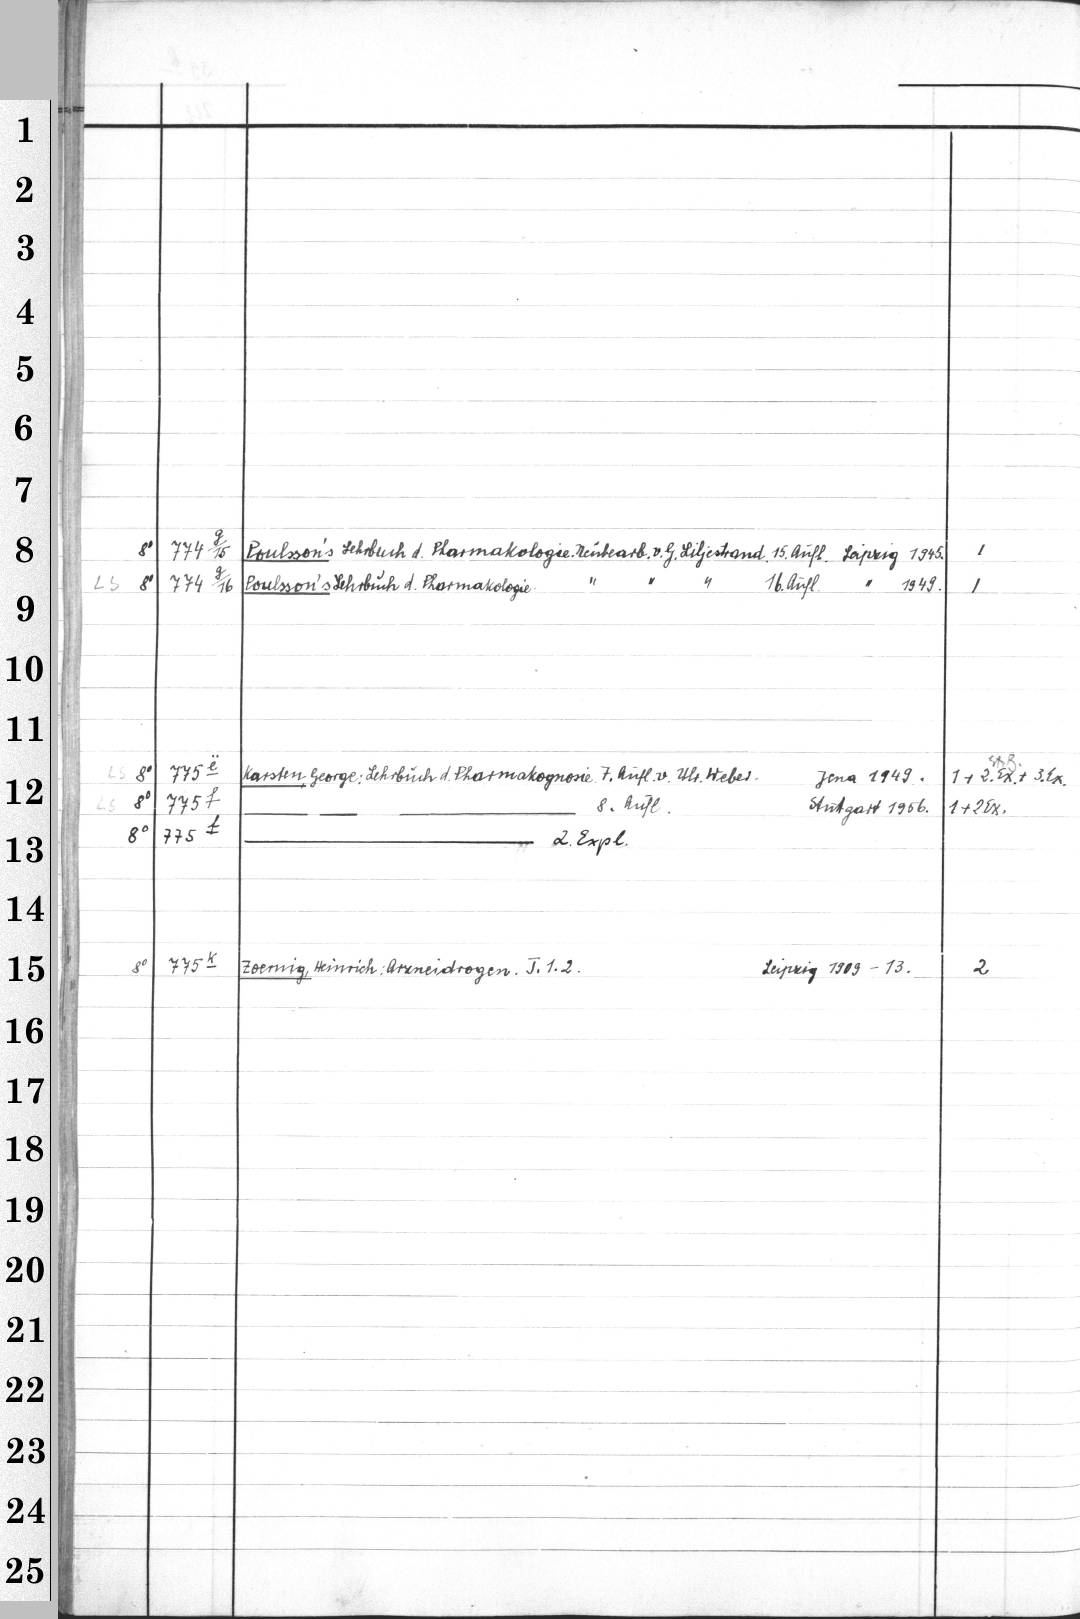 1
2
3
4
5
6
7
8 8° 774 g/15 Poulsson's Lehrbuch d. Pharmakologie. Neubearb. v. G. Liljestrand. 15. Aufl. Leipzig 1945. 1
LS 8° 774 g/16 Poulsson's Lehrbuch d. Pharmakologie. " " " 16. Aufl. " 1949. 1
9
10
11
LS 8° 775 ë Karsten, George: Lehrbuch d. Pharmakognosie. 7. Aufl. v. Ulr. Weber. Jena 1949. 1 + 2. Ex. + 3. Ex.
12 LS 8° 775 f — — — 8. Aufl. Stuttgart 1956. 1 + 2 Ex.
13 8° 775 f — 2. Expl.
14
15 8° 775 k Zoernig, Heinrich: Arzneidrogen. T. 1. 2. Leipzig 1909 - 13. 2
16
17
18
19
20
21
22
23
24
25